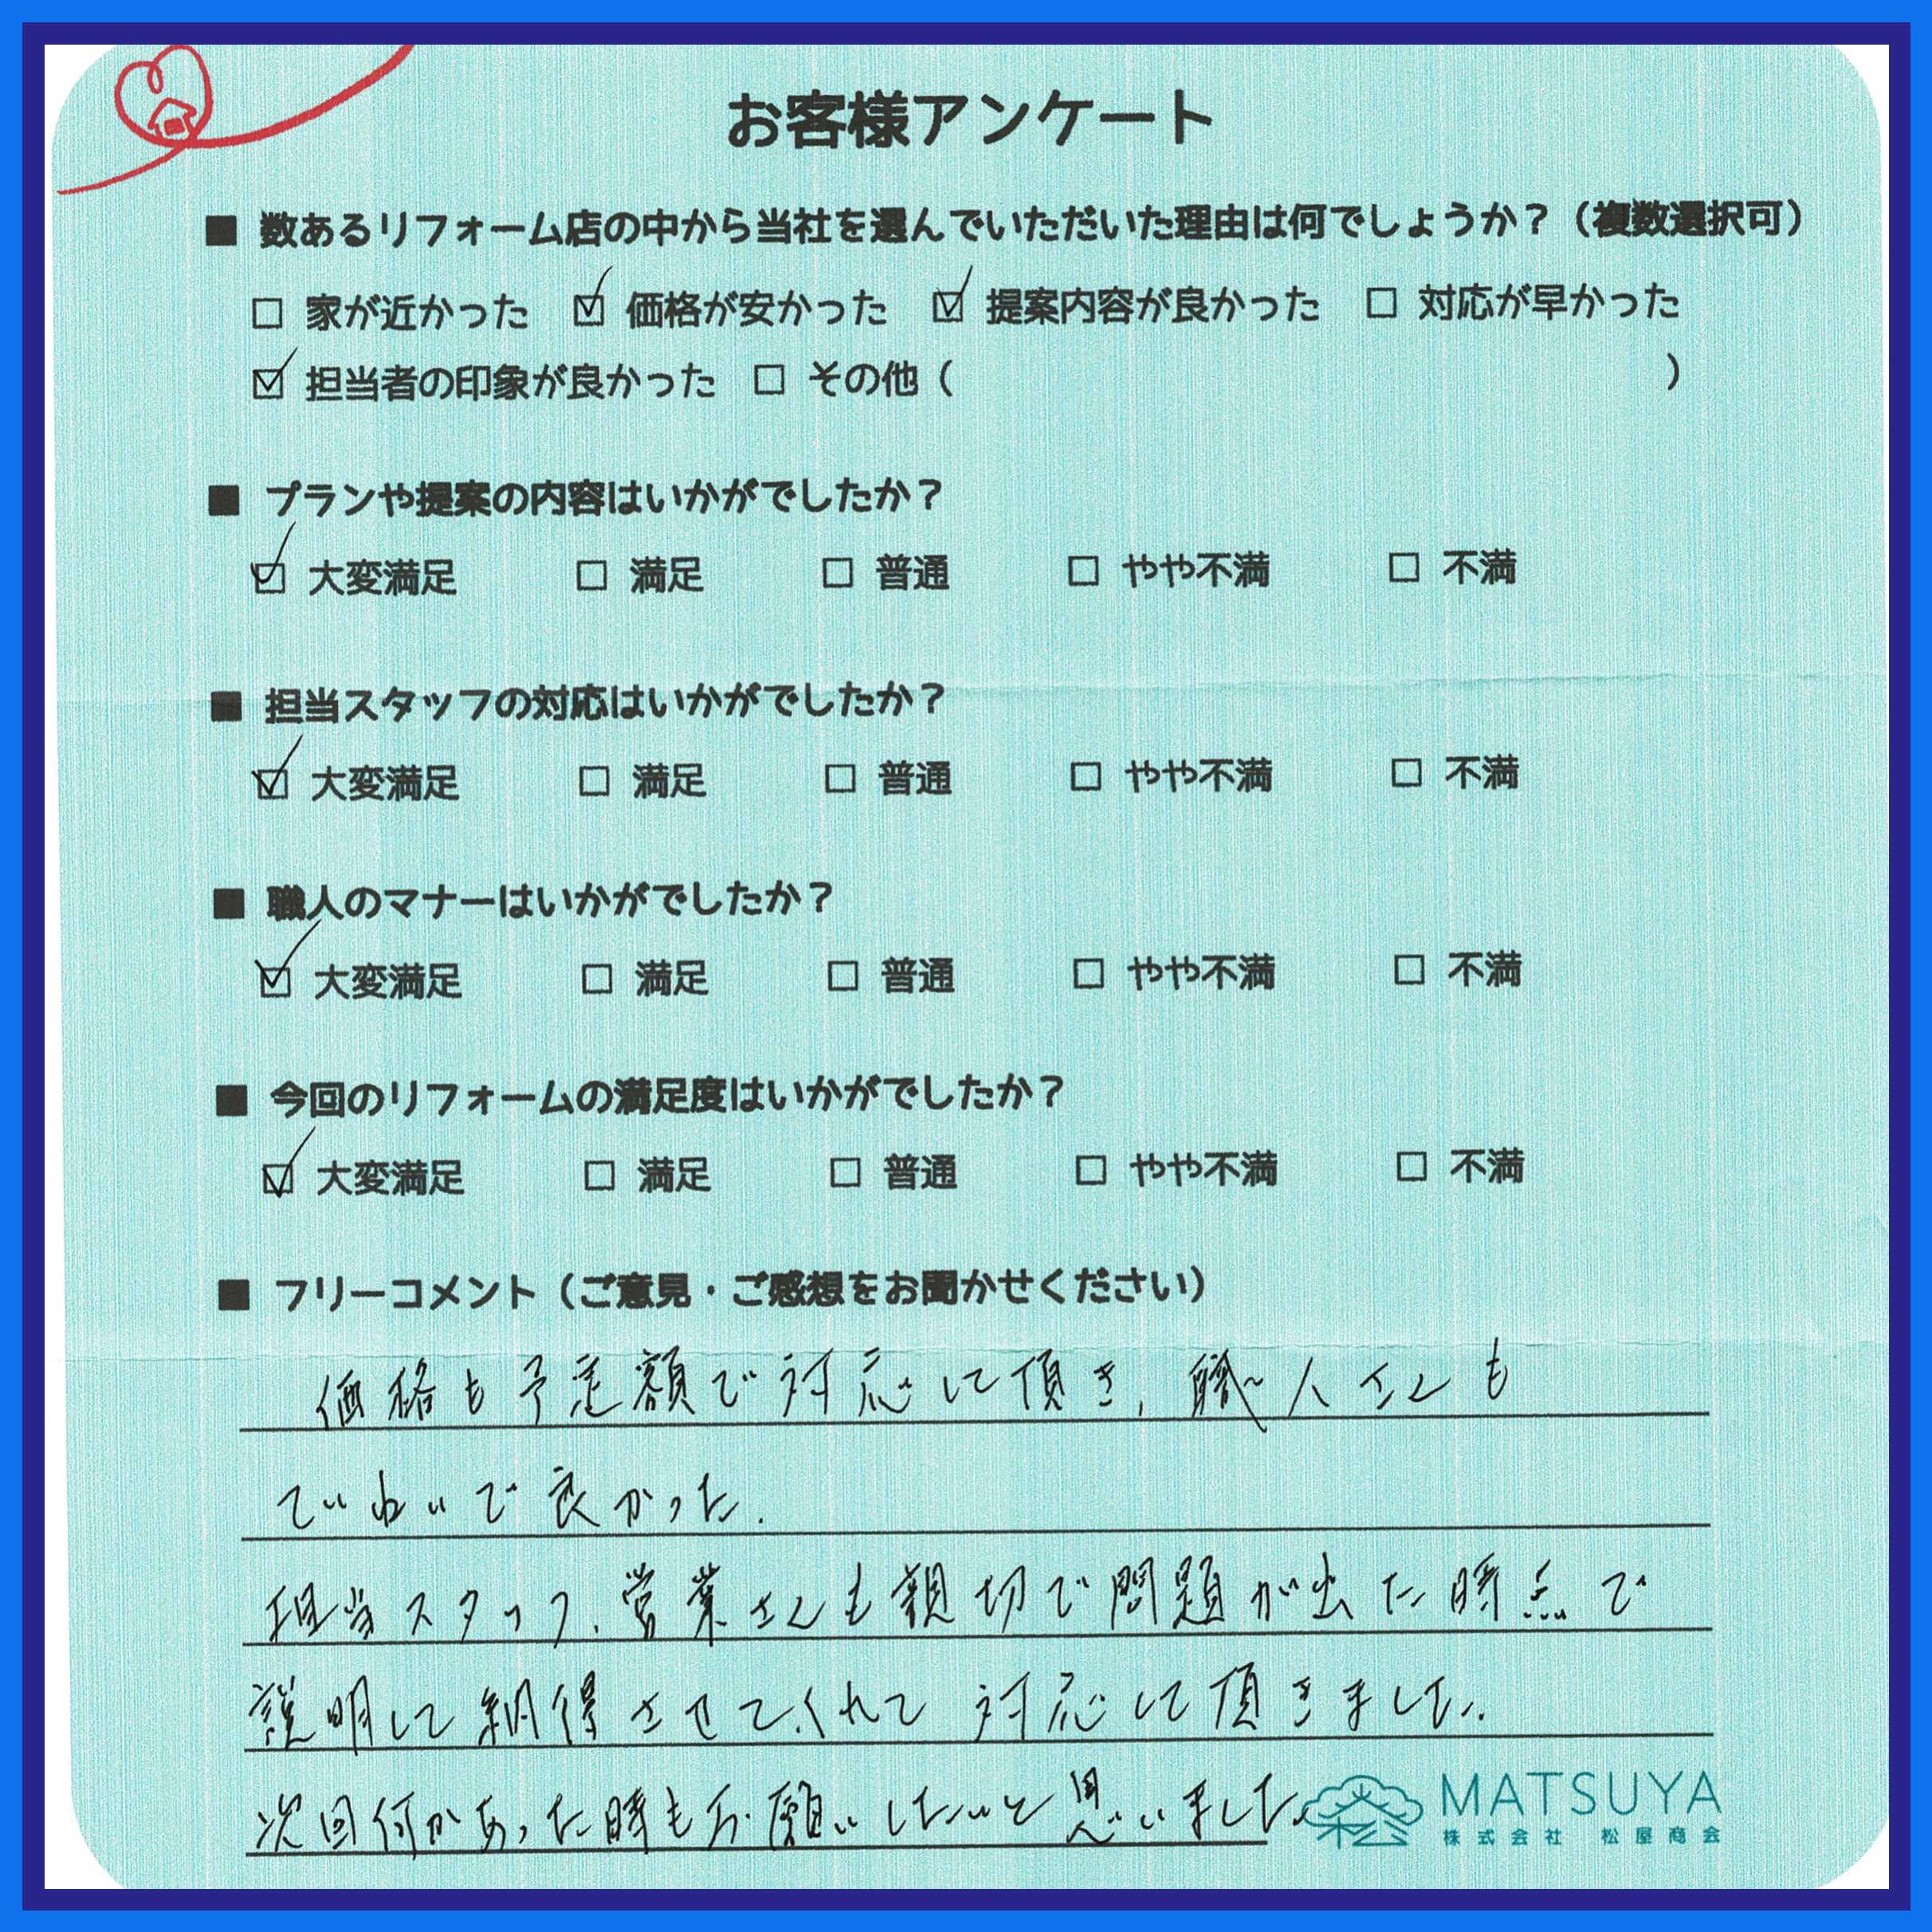 お客様アンケート
■ 数あるリフォーム店の中から当社を選んでいただいた理由は何でしょうか？（複数選択可）
□ 家が近かった ☑ 価格が安かった ☑ 提案内容が良かった □ 対応が早かった
☑ 担当者の印象が良かった □ その他（ ）
■ プランや提案の内容はいかがでしたか？
☑ 大変満足 □ 満足 □ 普通 □ やや不満 □ 不満
■ 担当スタッフの対応はいかがでしたか？
☑ 大変満足 □ 満足 □ 普通 □ やや不満 □ 不満
■ 職人のマナーはいかがでしたか？
☑ 大変満足 □ 満足 □ 普通 □ やや不満 □ 不満
■ 今回のリフォームの満足度はいかがでしたか？
☑ 大変満足 □ 満足 □ 普通 □ やや不満 □ 不満
■ フリーコメント（ご意見・ご感想をお聞かせください）
価格も予定額で対応して頂き、職人さんも
ていねいで良かった。
担当スタッフ、営業さんも親切で問題が出た時点で
説明して納得させてくれて対応して頂きました。
次回何かあった時もお願いしたいと思いました。
MATSUYA
株式会社 松屋商会